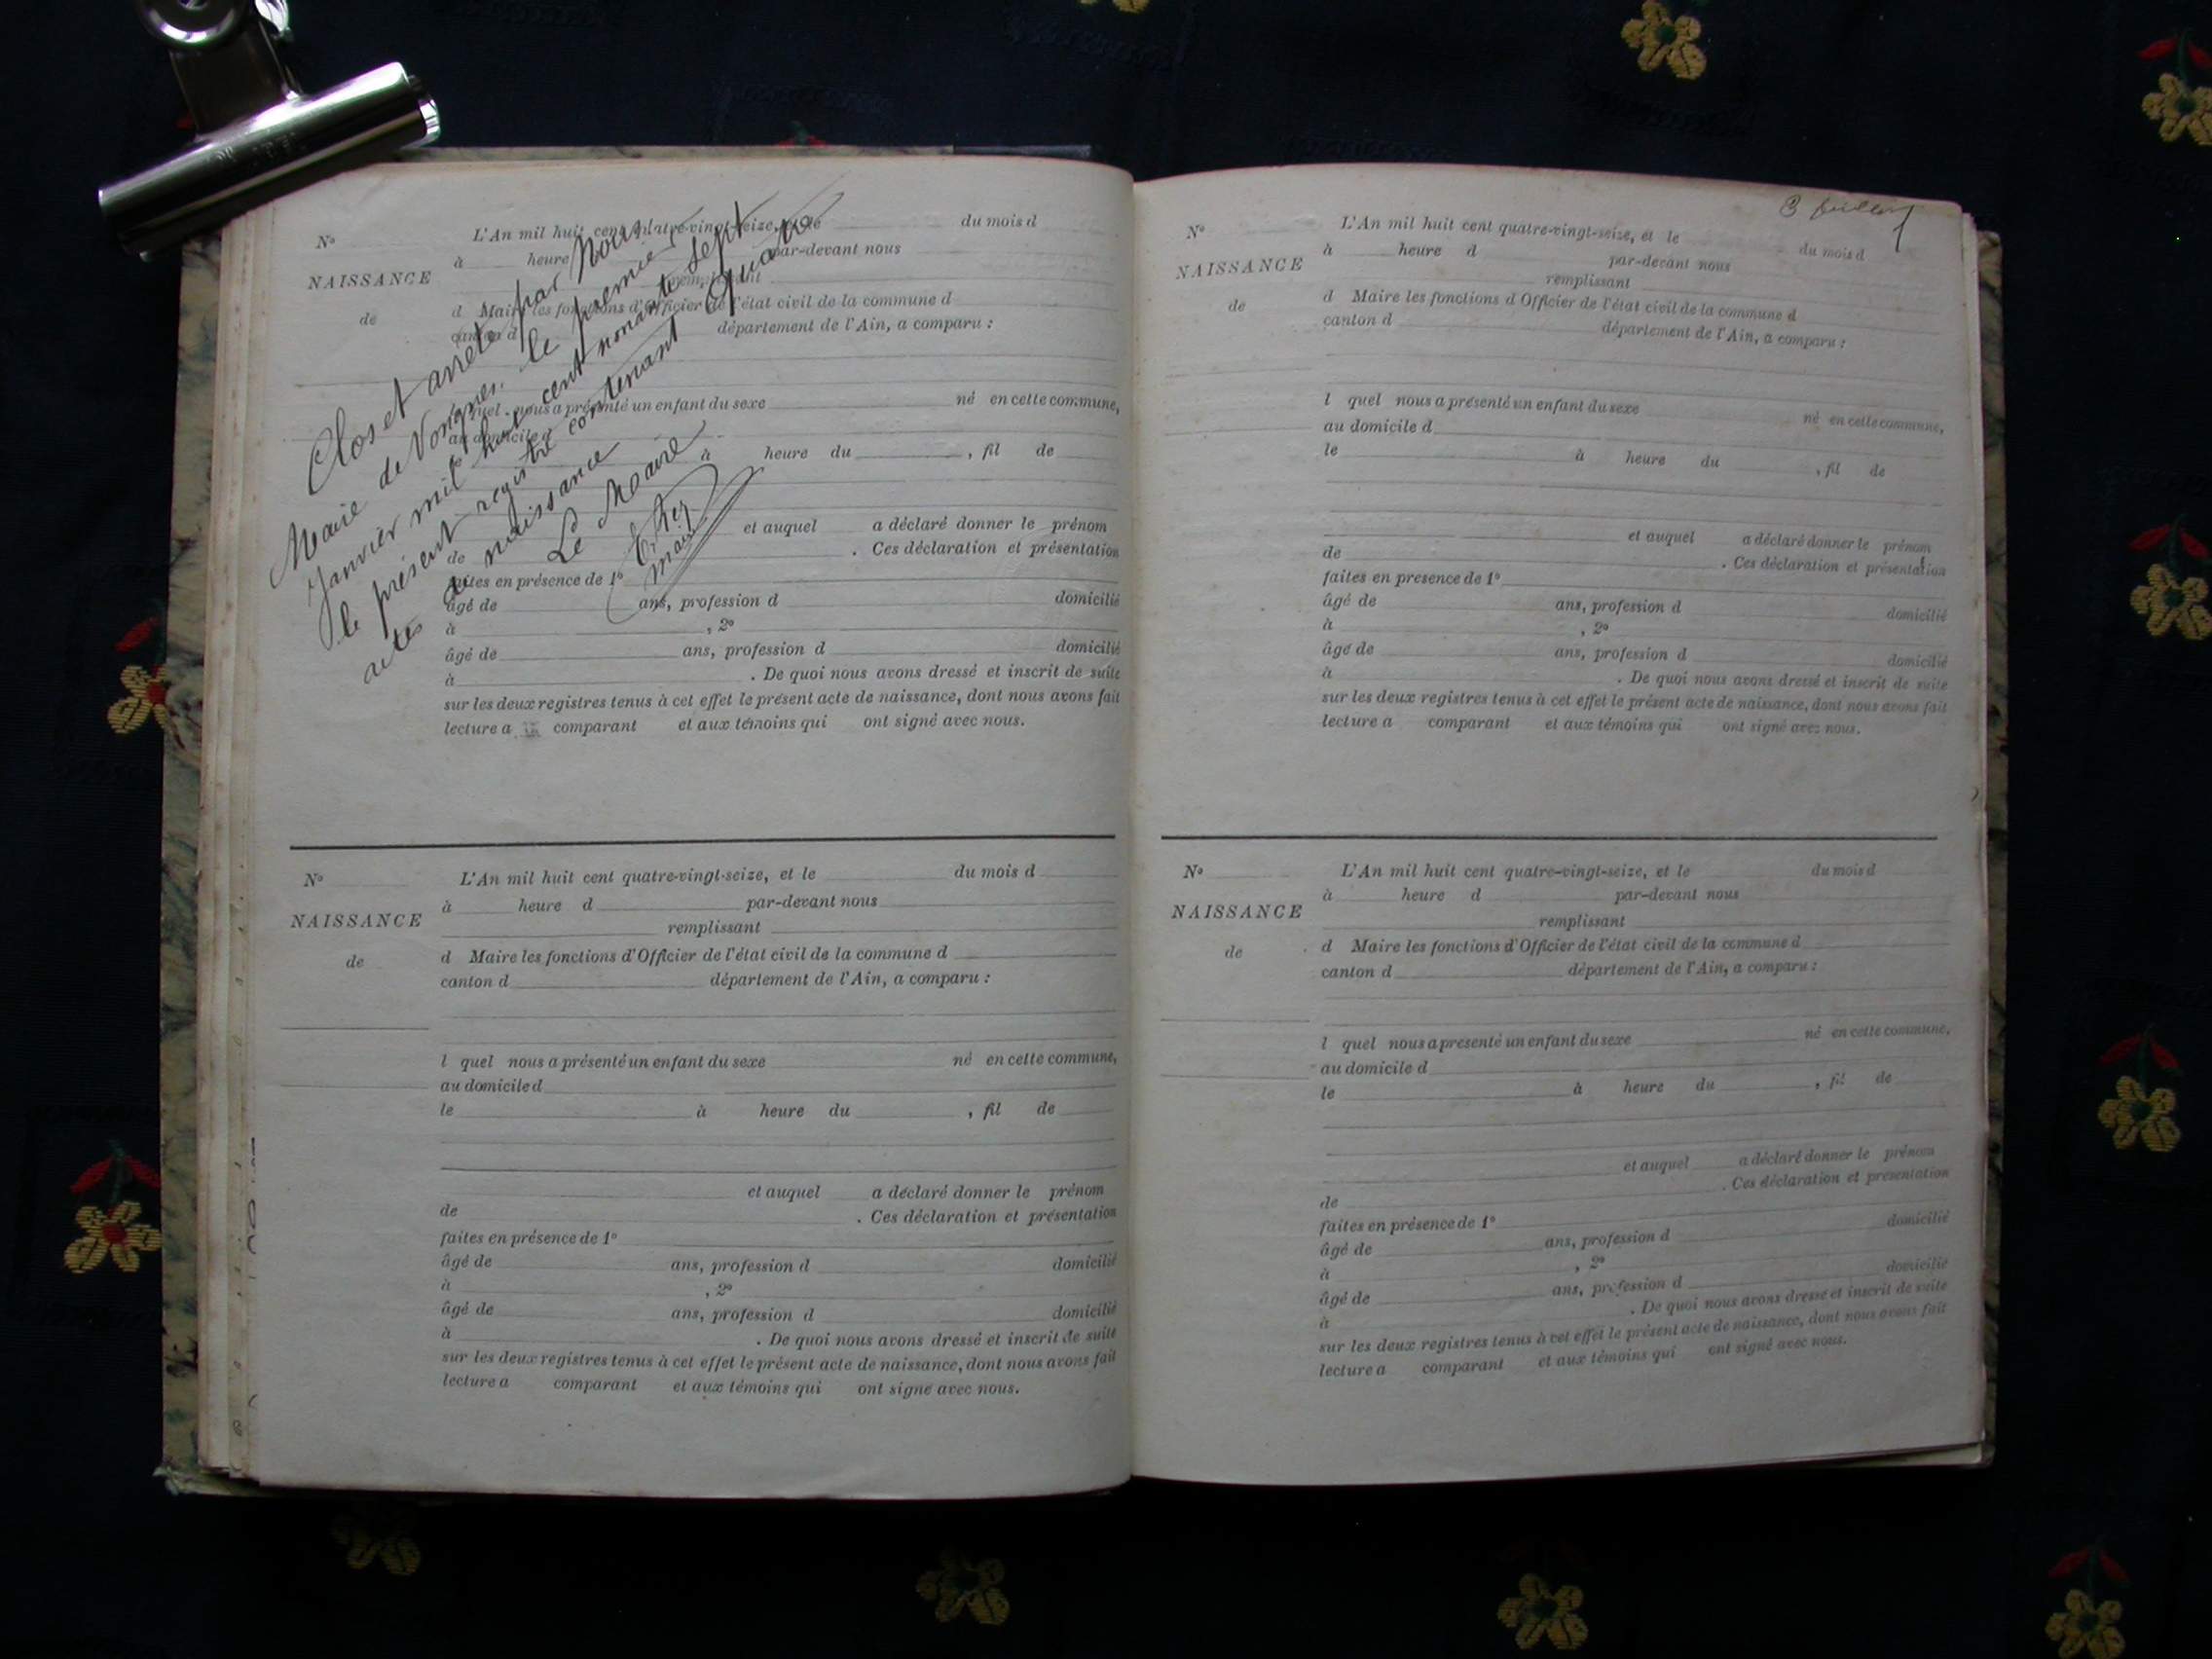 N° L'An mil huit cent quatre-vingt-seize, et le du mois d
à heure d par-devant nous
NAISSANCE remplissant
de d Maire les fonctions d'Officier de l'état civil de la commune d
canton d département de l'Ain, a comparu :
l quel nous a présenté un enfant du sexe né en cette commune,
au domicile d
le à heure du , fil de
et auquel a déclaré donner le prénom
de . Ces déclaration et présentation
faites en présence de 1°
âgé de ans, profession d domicilié
à , 2°
âgé de ans, profession d domicilié
à . De quoi nous avons dressé et inscrit de suite
sur les deux registres tenus à cet effet le présent acte de naissance, dont nous avons fait
lecture a comparant et aux témoins qui ont signé avec nous.
Clos et arrêté par Nous
Maire de Vongnes. le premier
Janvier mil huit cent nonante sept
le présent registre contenant Quatre
actes de naissance
Le Maire
maire
N° L'An mil huit cent quatre-vingt-seize, et le du mois d
à heure d par-devant nous
NAISSANCE remplissant
de d Maire les fonctions d'Officier de l'état civil de la commune d
canton d département de l'Ain, a comparu :
l quel nous a présenté un enfant du sexe né en cette commune,
au domicile d
le à heure du , fil de
et auquel a déclaré donner le prénom
de . Ces déclaration et présentation
faites en présence de 1°
âgé de ans, profession d domicilié
à , 2°
âgé de ans, profession d domicilié
à . De quoi nous avons dressé et inscrit de suite
sur les deux registres tenus à cet effet le présent acte de naissance, dont nous avons fait
lecture a comparant et aux témoins qui ont signé avec nous.
3
N° L'An mil huit cent quatre-vingt-seize, et le du mois d
à heure d par-devant nous
NAISSANCE remplissant
de d Maire les fonctions d'Officier de l'état civil de la commune d
canton d département de l'Ain, a comparu :
l quel nous a présenté un enfant du sexe né en cette commune,
au domicile d
le à heure du , fil de
et auquel a déclaré donner le prénom
de . Ces déclaration et présentation
faites en présence de 1°
âgé de ans, profession d domicilié
à , 2°
âgé de ans, profession d domicilié
à . De quoi nous avons dressé et inscrit de suite
sur les deux registres tenus à cet effet le présent acte de naissance, dont nous avons fait
lecture a comparant et aux témoins qui ont signé avec nous.
N° L'An mil huit cent quatre-vingt-seize, et le du mois d
à heure d par-devant nous
NAISSANCE remplissant
de d Maire les fonctions d'Officier de l'état civil de la commune d
canton d département de l'Ain, a comparu :
l quel nous a présenté un enfant du sexe né en cette commune,
au domicile d
le à heure du , fil de
et auquel a déclaré donner le prénom
de . Ces déclaration et présentation
faites en présence de 1°
âgé de ans, profession d domicilié
à , 2°
âgé de ans, profession d domicilié
à . De quoi nous avons dressé et inscrit de suite
sur les deux registres tenus à cet effet le présent acte de naissance, dont nous avons fait
lecture a comparant et aux témoins qui ont signé avec nous.